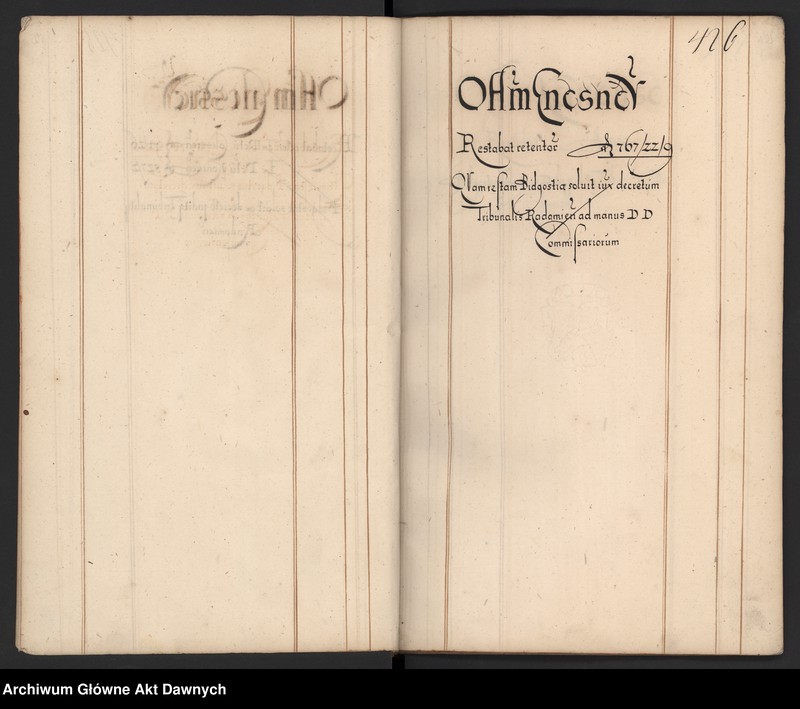 426
Restabat retentor̃ fl 767/22/9
Quam restam Bidgostiæ soluit iux decretum
Tribunalis Radomień ad manus D D
Commissariorum
Archiwum Główne Akt Dawnych